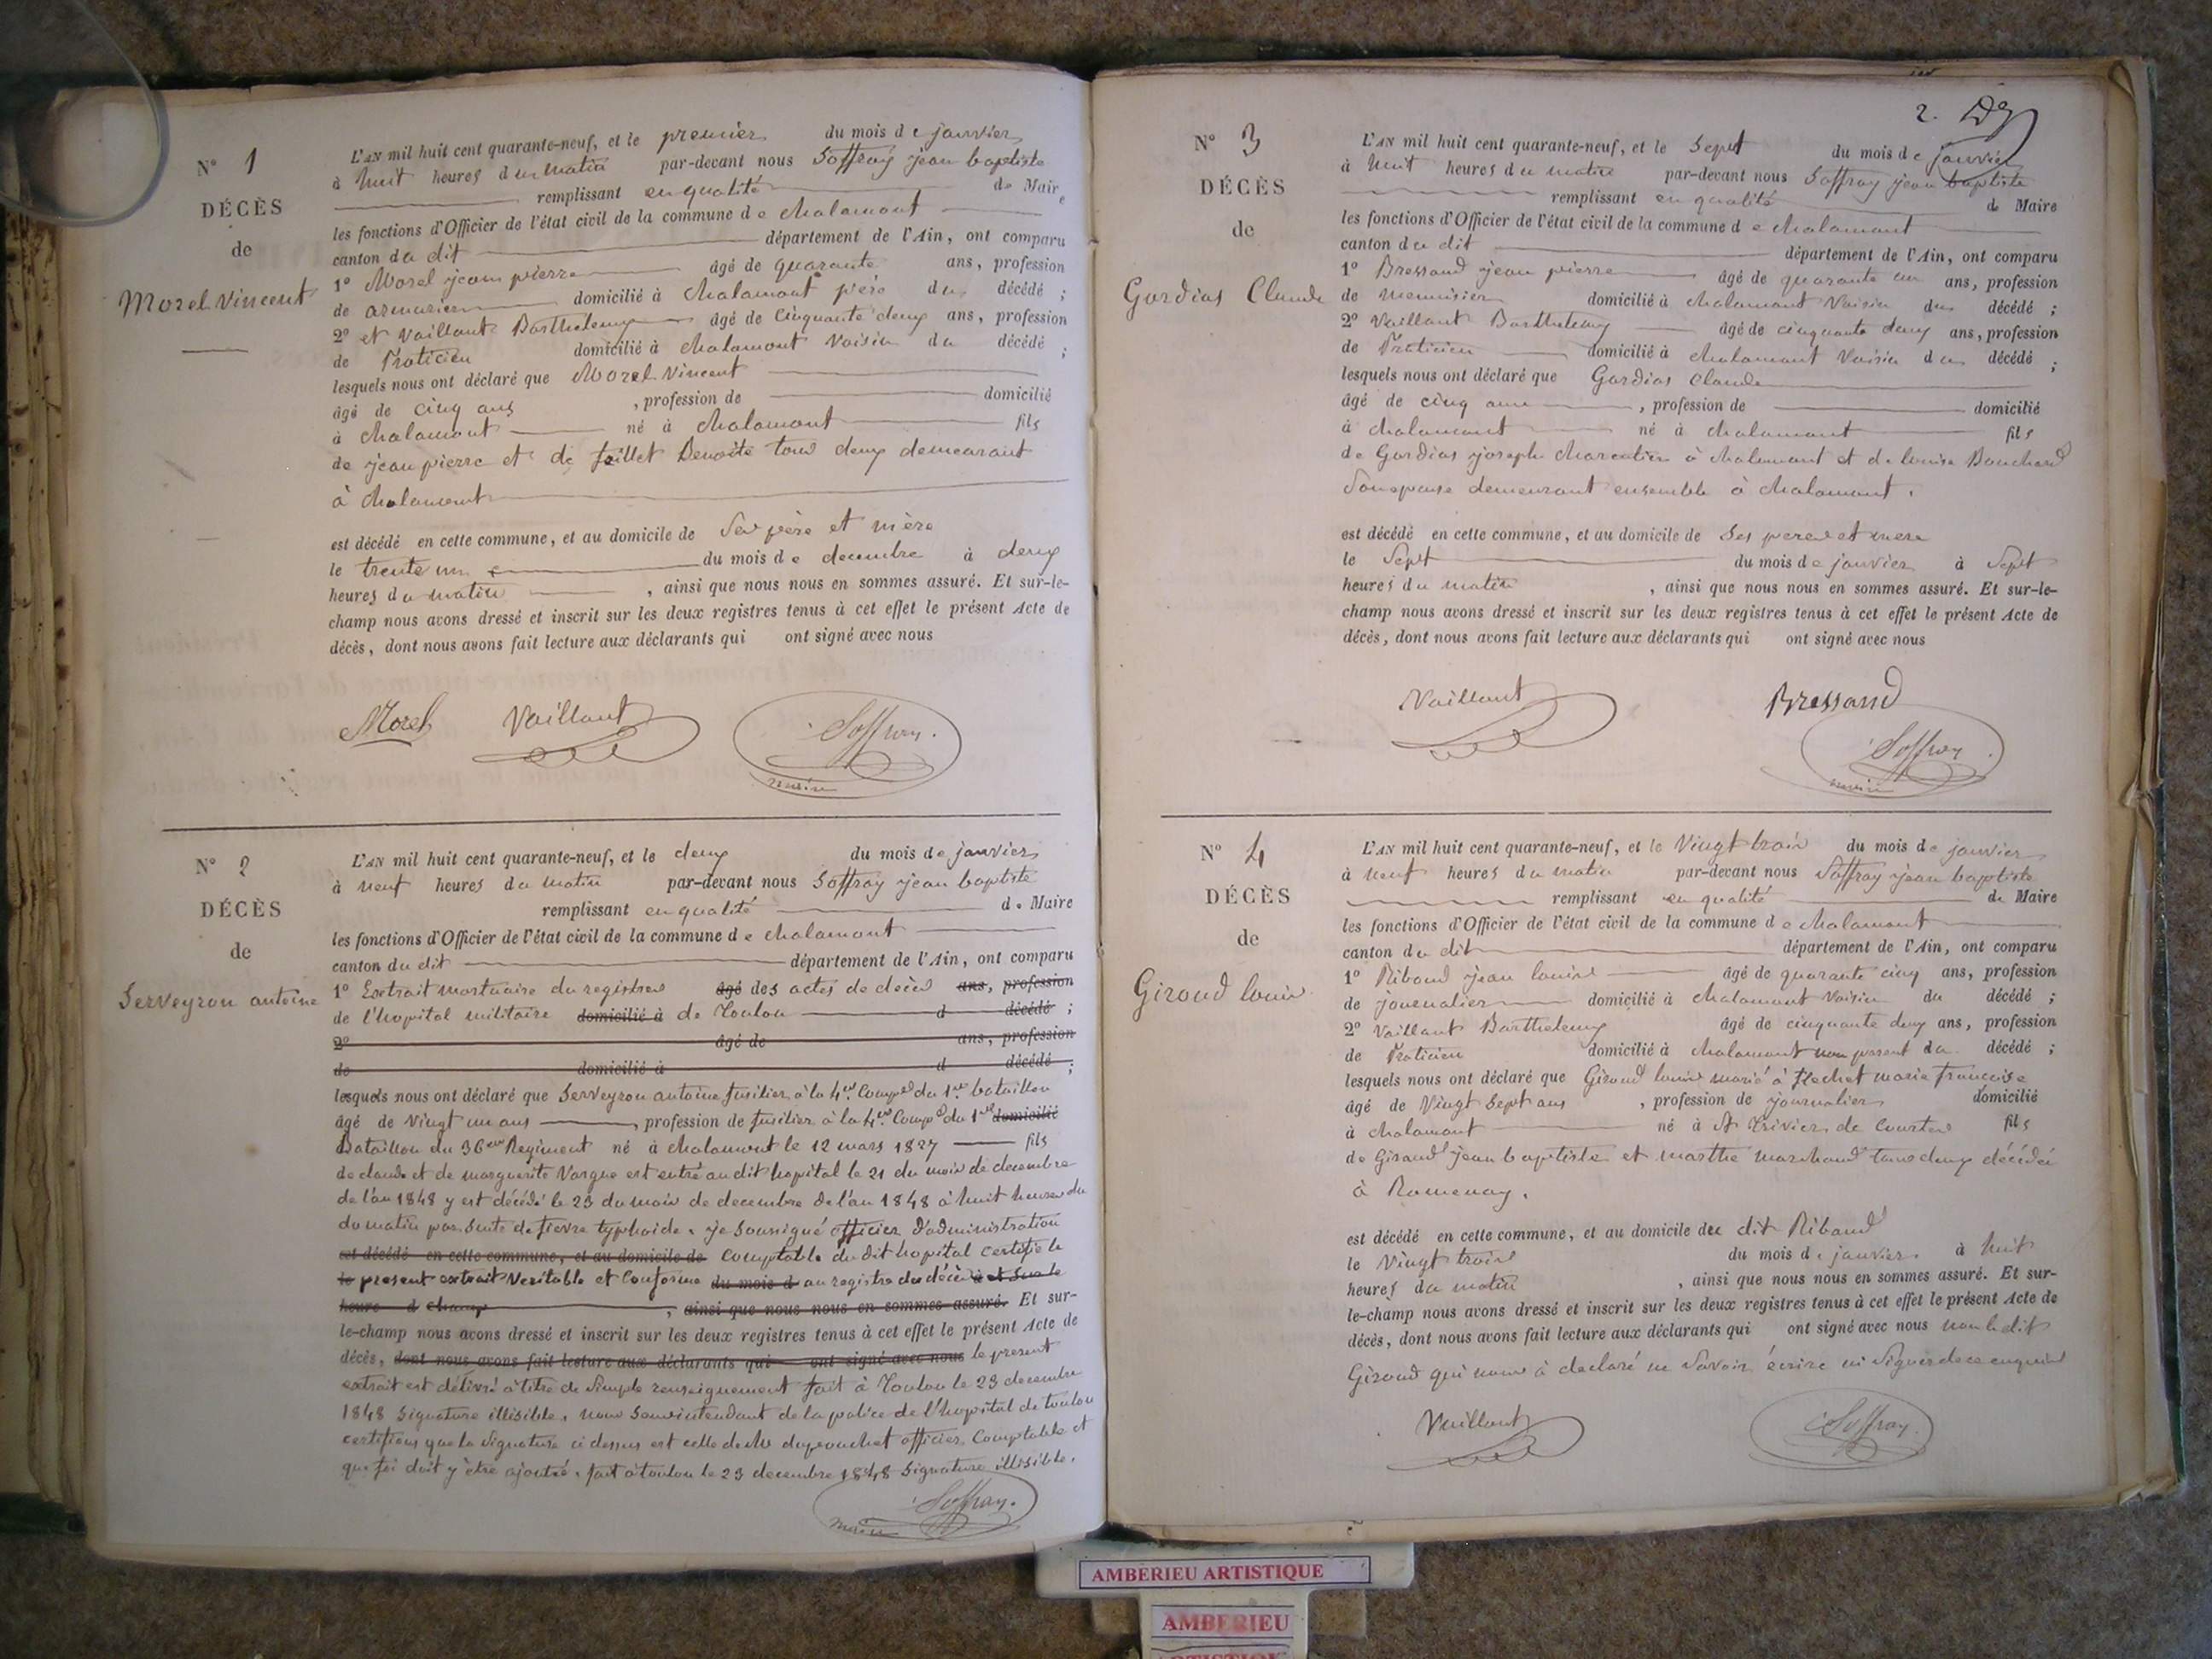 N° 1
DÉCÈS
de
Morel Vincent
L'AN mil huit cent quarante-neuf, et le premier du mois de janvier
à huit heures du matin par-devant nous Soffray jean baptiste
remplissant en qualité de Maire
les fonctions d'Officier de l'état civil de la commune de chalamont
canton du dit département de l'Ain, ont comparu
1° Morel jean pierre âgé de quarante ans, profession
de armurier domicilié à chalamont père du décédé ;
2° et Vaillant Barthelemy âgé de Cinquante deux ans, profession
de Praticien domicilié à chalamont Voisin du décédé ;
lesquels nous ont déclaré que Morel Vincent
âgé de cinq ans , profession de domicilié
à chalamont né à chalamont fils
de jean pierre et de Benoite tous deux demeurant
à chalamont
est décédé en cette commune, et au domicile de Ses père et mère
le trente un du mois de decembre à deux
heures du matin , ainsi que nous nous en sommes assuré. Et sur-le-
champ nous avons dressé et inscrit sur les deux registres tenus à cet effet le présent Acte de
décès, dont nous avons fait lecture aux déclarants qui ont signé avec nous
Morel Vaillant Soffray
maire
N° 2
DÉCÈS
de
Serveyron antoine
L'AN mil huit cent quarante-neuf, et le deux du mois de janvier
à neuf heures du matin par-devant nous Soffray jean baptiste
remplissant en qualité de Maire
les fonctions d'Officier de l'état civil de la commune de chalamont
canton du dit département de l'Ain, ont comparu
1° Extrait mortuaire du registres âgé des actes de décès ans, profession
de l'hopital militaire domicilié à de Toulon d décédé ;
2° âgé de ans, profession
de domicilié à d décédé ;
lesquels nous ont déclaré que Serveyron antoine fusilier à la 4e Comp du 1er bataillon
âgé de Vingt un ans , profession de fusilier à la 4e Comp du 1er domicilié
Bataillon du 36eme Regiment né à chalamont le 12 mars 1827 fils
de claude et de marguerite Vargue est entré au dit hopital le 21 du mois de decembre
de l'an 1848 y est décédé le 23 du mois de decembre de l'an 1848 à huit heures du
du matin par Suite de fievre typhoide. je Soussigné officier d'administration
est décédé en cette commune, et au domicile de Comptable du dit hopital certifie le
le present extrait Veritable et Conforme du mois d au registre des décès à et Sur le
heure d champ , ainsi que nous nous en sommes assuré. Et sur-
le-champ nous avons dressé et inscrit sur les deux registres tenus à cet effet le présent Acte de
décès, dont nous avons fait lecture aux déclarants qui ont signé avec nous le present
extrait est délivré à titre de Simple renseignement fait à Toulon le 23 decembre
1848 Signature illisible. nous Sousintendant de la police de l'hopital de toulon
certifions que la Signature ci dessus est celle de officier Comptable et
que foi doit y être ajoutée. fait à toulon le 23 decembre 1848 Signature illisible.
Soffray.
maire
2.
N° 3
DÉCÈS
de
Gordias Claude
L'AN mil huit cent quarante-neuf, et le Sept du mois de janvier
à huit heures du matin par-devant nous Soffray jean baptiste
remplissant en qualité de Maire
les fonctions d'Officier de l'état civil de la commune de chalamont
canton du dit département de l'Ain, ont comparu
1° Bressand jean pierre âgé de quarante un ans, profession
de menuisier domicilié à chalamont Voisin du décédé ;
2° Vaillant Barthelemy âgé de cinquante deux ans, profession
de Praticien domicilié à chalamont Voisin du décédé ;
lesquels nous ont déclaré que Gordias Claude
âgé de cinq ans , profession de domicilié
à chalamont né à chalamont fils
de Gordias joseph à chalamont et de louise Bouchard
Son epouse demeurant ensemble à chalamont.
est décédé en cette commune, et au domicile de Ses peres et mere
le Sept du mois de janvier à Sept
heures du matin , ainsi que nous nous en sommes assuré. Et sur-le-
champ nous avons dressé et inscrit sur les deux registres tenus à cet effet le présent Acte de
décès, dont nous avons fait lecture aux déclarants qui ont signé avec nous
Vaillant Bressand
Soffray
maire
N° 4
DÉCÈS
de
Giroud louis
L'AN mil huit cent quarante-neuf, et le Vingt trois du mois de janvier
à neuf heures du matin par-devant nous Soffray jean baptiste
remplissant en qualité de Maire
les fonctions d'Officier de l'état civil de la commune de chalamont
canton du dit département de l'Ain, ont comparu
1° Riboud jean louis âgé de quarante cinq ans, profession
de journalier domicilié à chalamont Voisin du décédé ;
2° Vaillant Barthelemy âgé de cinquante deux ans, profession
de Praticien domicilié à chalamont non parent du décédé ;
lesquels nous ont déclaré que Giroud louis marié à flechet marie francoise
âgé de Vingt Sept ans , profession de journalier domicilié
à chalamont né à St Trivier de Courtes fils
de Giroud jean baptiste et marthe marchand tous deux décédés
à Romenay.
est décédé en cette commune, et au domicile du dit Riboud
le Vingt trois du mois de janvier à huit
heures du matin , ainsi que nous nous en sommes assuré. Et sur-
le-champ nous avons dressé et inscrit sur les deux registres tenus à cet effet le présent Acte de
décès, dont nous avons fait lecture aux déclarants qui ont signé avec nous non le dit
Giroud qui nous à declaré ne Savoir écrire ni Signer de ce enquis
Vaillant Soffray
AMBERIEU ARTISTIQUE
AMBERIEU
ARTISTIQUE